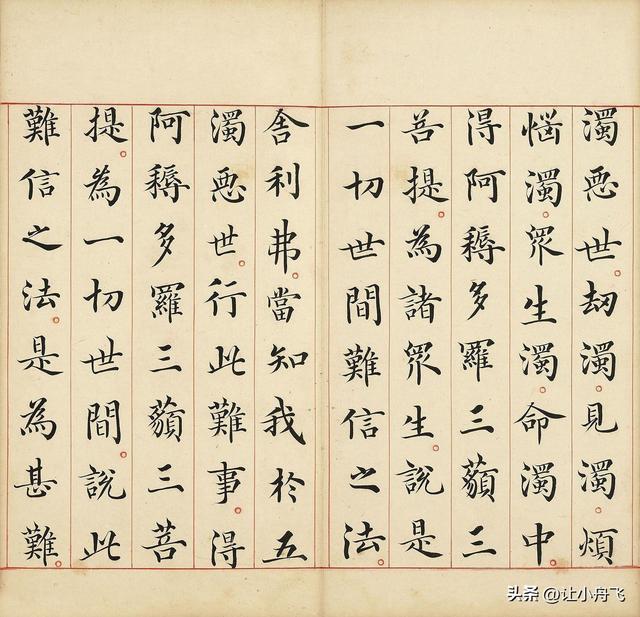 濁惡世。刼濁。見濁。煩
惱濁。眾生濁。命濁中。
得阿耨多羅三藐三
菩提。為諸眾生。說是
一切世間難信之法。
舍利弗。當知我於五
濁惡世。行此難事。得
阿耨多羅三藐三菩
提。為一切世間。說此
難信之法。是為甚難。
头条 @让小舟飞